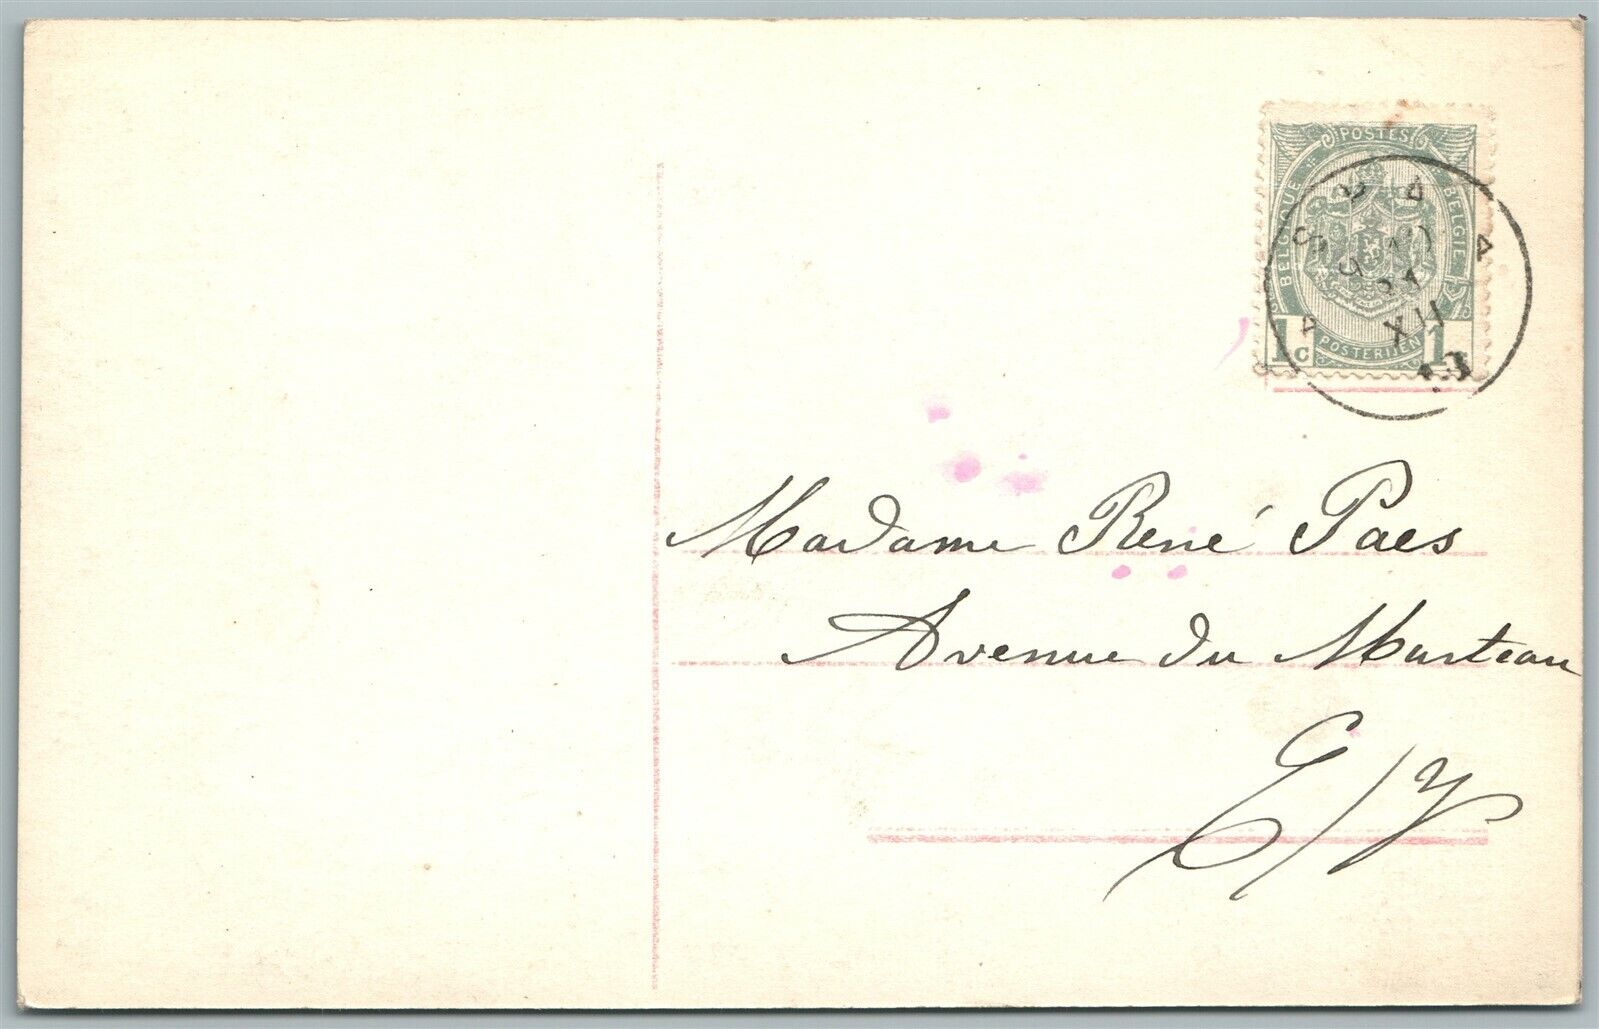 POSTES
BELGIQUE
BELGIË
1c 1
POSTERIJEN
XII
Madame René Paes
Avenue du Marteau
E/V